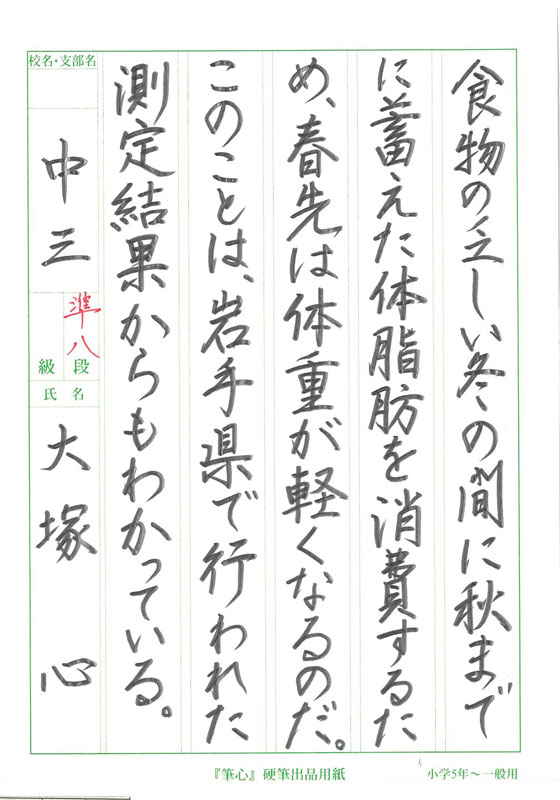 食物の乏しい冬の間に秋まで
に蓄えた体脂肪を消費するた
め、春先は体重が軽くなるのだ。
このことは、岩手県で行われた
測定結果からもわかっている。
校名・支部名
中三
準八
級 段
氏名
大塚 心
『筆心』硬筆出品用紙
小学5年～一般用